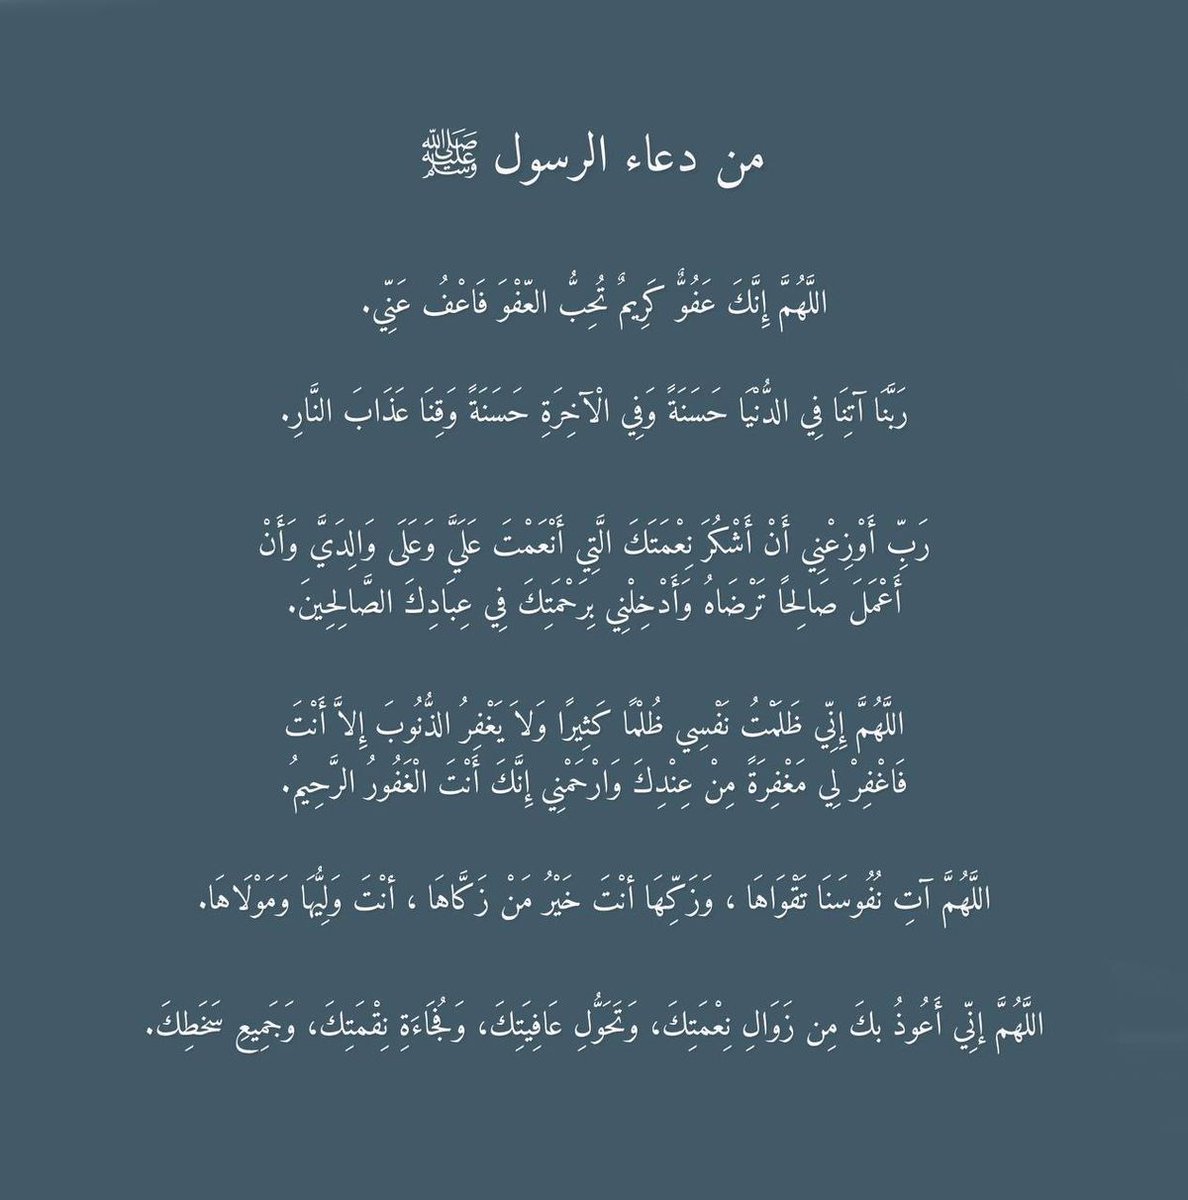 من دعاء الرسول ﷺ
اللَّهُمَّ إِنَّكَ عَفُوٌّ كَرِيمٌ تُحِبُّ العّفْوَ فَاعْفُ عَنِّي.
رَبَّنَا آتِنَا فِي الدُّنْيَا حَسَنَةً وَفِي الْآخِرَةِ حَسَنَةً وَقِنَا عَذَابَ النَّارِ.
رَبِّ أَوْزِعْنِي أَنْ أَشْكُرَ نِعْمَتَكَ الَّتِي أَنْعَمْتَ عَلَيَّ وَعَلَى وَالِدَيَّ وَأَنْ
أَعْمَلَ صَالِحًا تَرْضَاهُ وَأَدْخِلْنِي بِرَحْمَتِكَ فِي عِبَادِكَ الصَّالِحِينَ.
اللَّهُمَّ إِنِّي ظَلَمْتُ نَفْسِي ظُلْمًا كَثِيرًا وَلاَ يَغْفِرُ الذُّنُوبَ إِلاَّ أَنْتَ
فَاغْفِرْ لِي مَغْفِرَةً مِنْ عِنْدِكَ وَارْحَمْنِي إِنَّكَ أَنْتَ الْغَفُورُ الرَّحِيمُ.
اللَّهُمَّ آتِ نُفُوسَنَا تَقْوَاهَا ، وَزَكِّهَا أنْتَ خَيْرُ مَنْ زَكَّاهَا ، أنْتَ وَلِيُّهَا وَمَوْلَاهَا.
اللَّهُمَّ إنِّي أَعُوذُ بكَ مِن زَوَالِ نِعْمَتِكَ، وَتَحَوُّلِ عَافِيَتِكَ، وَفُجَاءَةِ نِقْمَتِكَ، وَجَمِيعِ سَخَطِكَ.